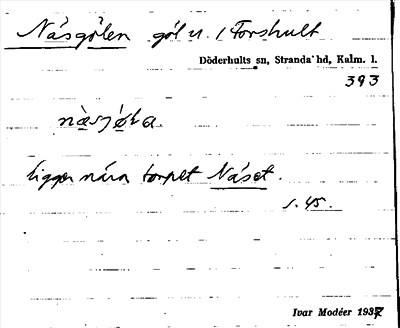 Näsgölen göl u. / Forshult
Döderhults sn, Stranda hd, Kalm. l.
393
ligger nära torpet Näset.
s. 45.
Ivar Modéer 1937